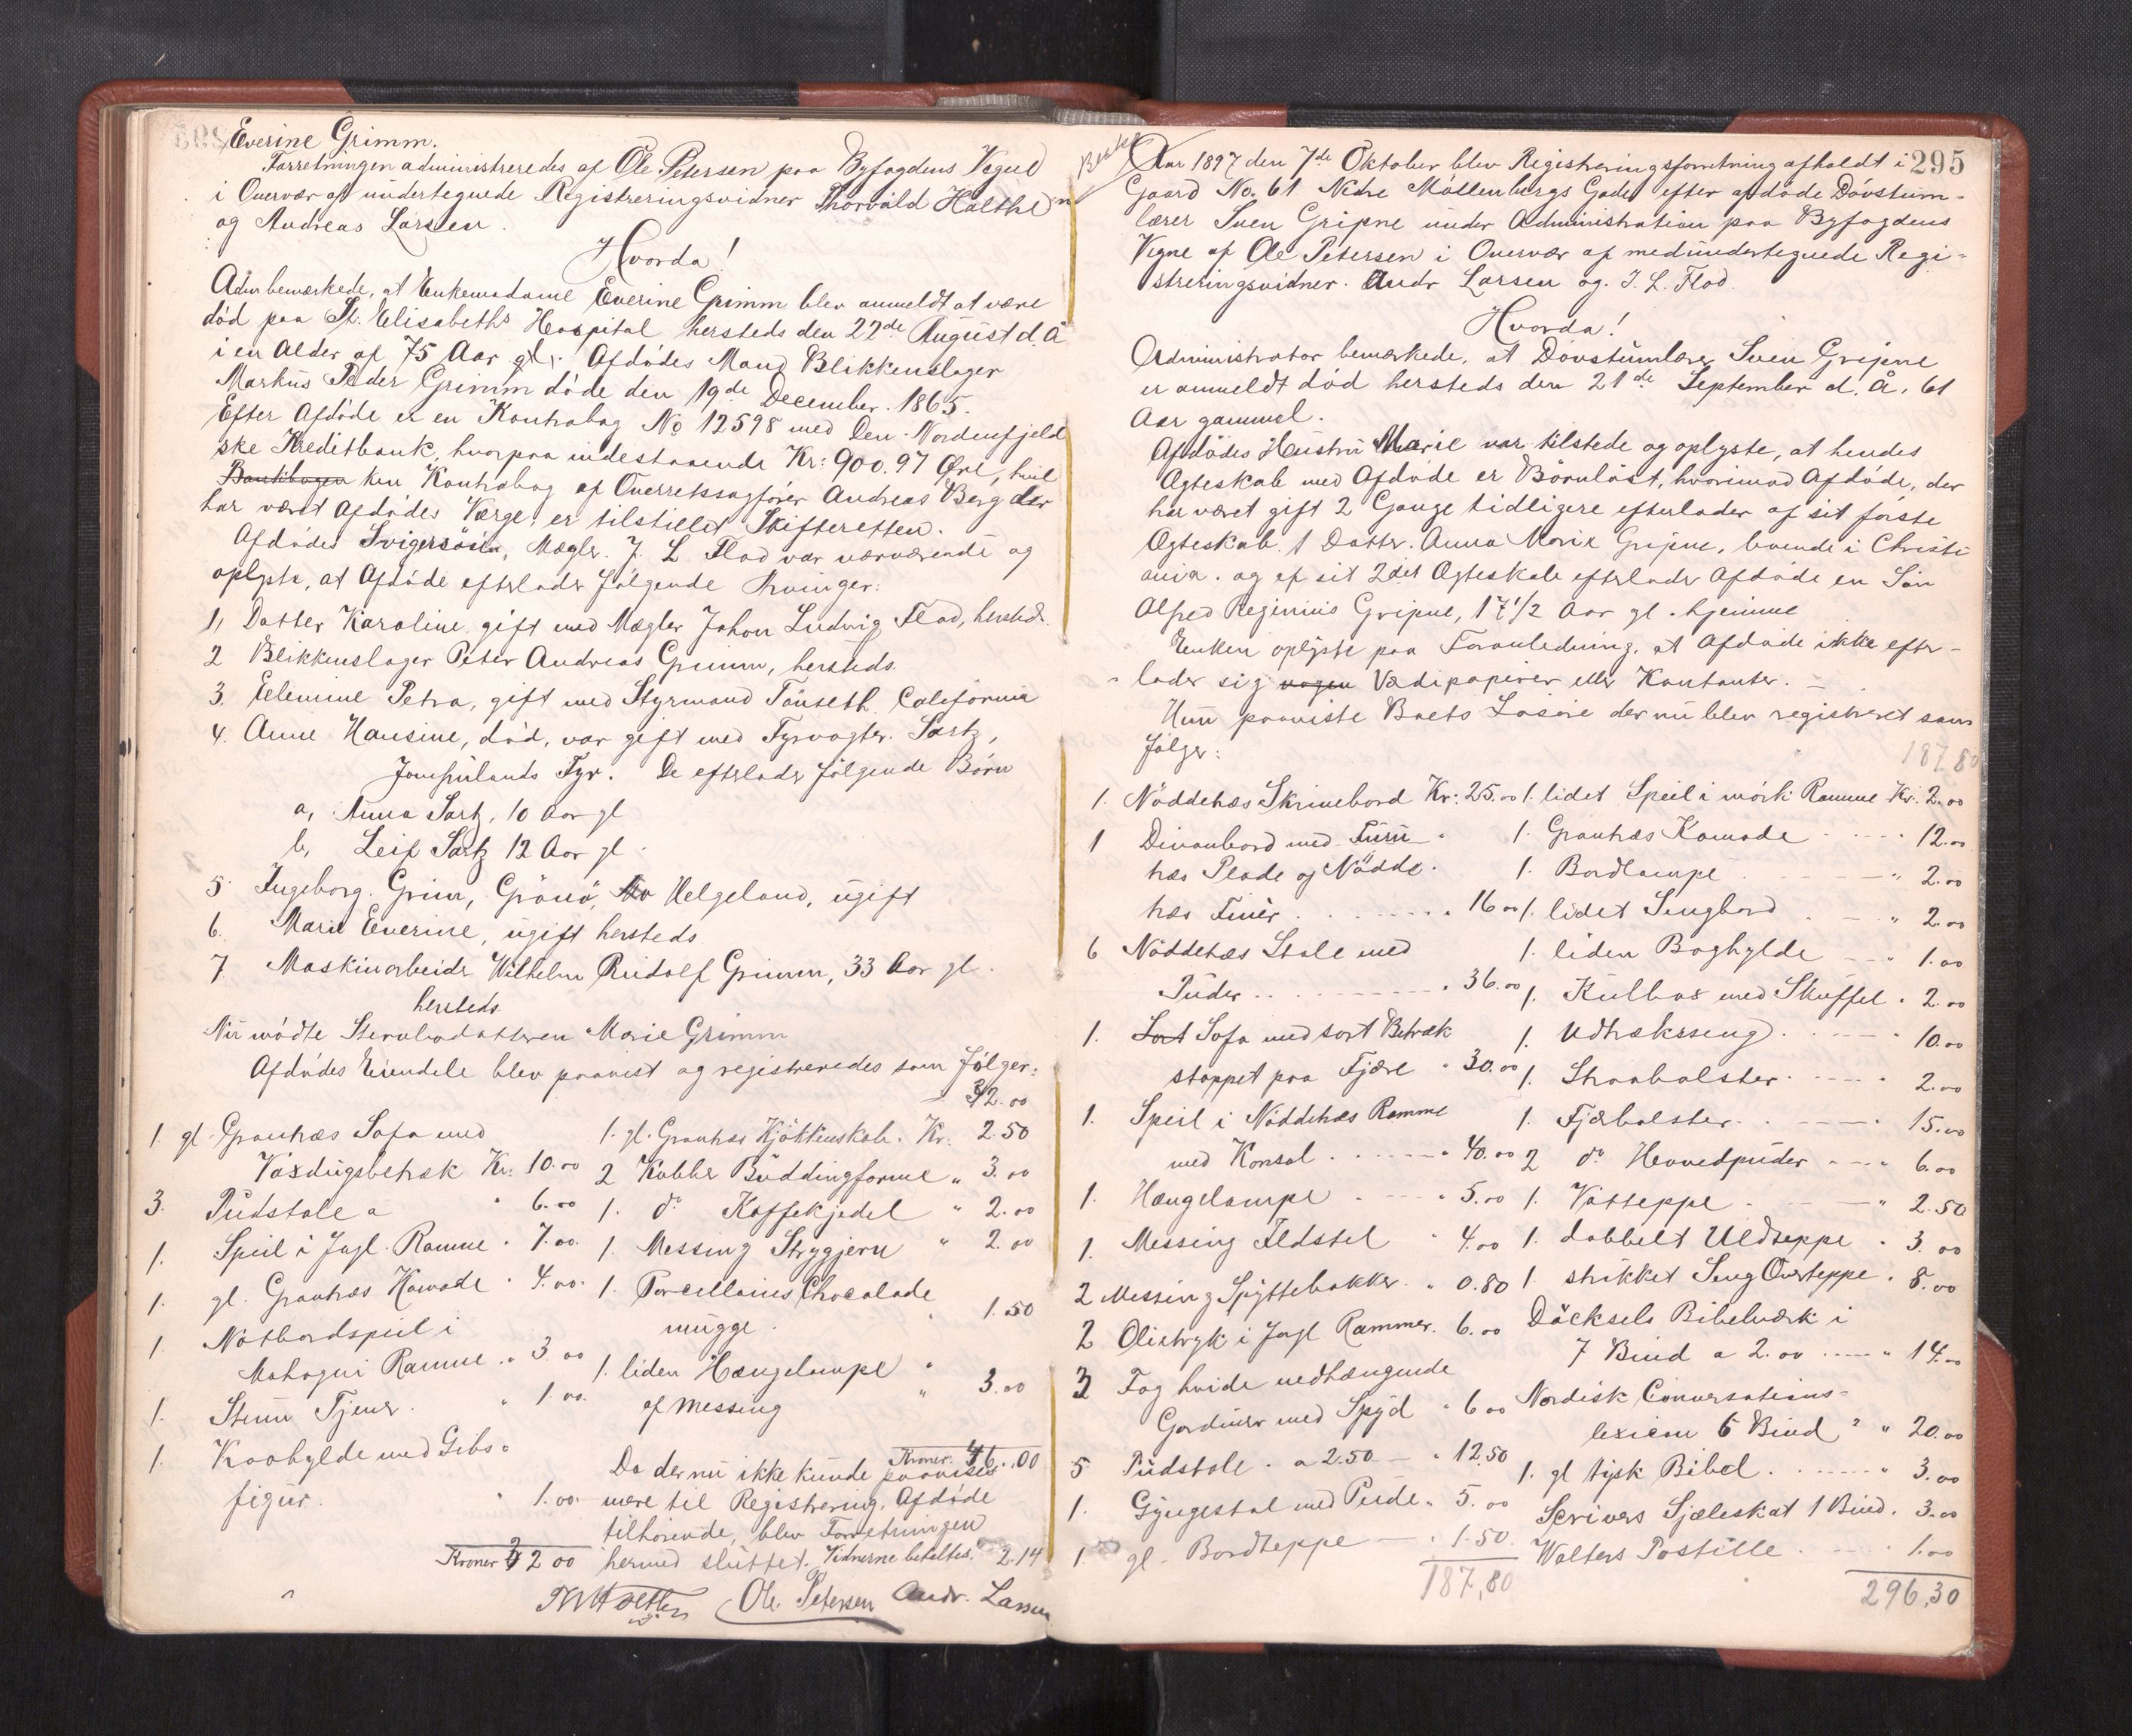 Everine Grimm.
Forretningen administreredes af Ole Petersen paa Byfogdens Vegne
i Overvær af undertegnede Registreringsvidner Thorvald Halthen
og Andreas Larsen.
Hvorda!
Adm bemærkede, at Enkemadame Everine Grimm blev anmeldt at være
död paa St. Elisabeths Hospital hersteds den 22de August d. A
i en Alder af 75 Aar gl. Afdödes Mand Blikkenslager
Markus Peder Grimm döde den 19de December 1865.
Efter Afdöde er en Kontrabog No 12598 med Den Nordenfjeld
ske Kreditbank, hvorpaa indestaaende Kr: 900.97 Öre, hvil
Bankbogen ken Kontrabog af Overretssagförer Andreas Berg der
har været Afdödes Værge, er tilstillet Skifteretten.
Afdödes Svigersösn, Mægler J. L Flod var nærværende og
oplyste, at Afdöde efterlader fölgende Arvinger:
1, Datter Karoline gift med Mægler Johan Ludvig Flod, hersteds.
2 Blikkenslager Peter Andreas Grimm, hersteds.
3. Elemine Petra, gift med Styrmand Tönseth California
4. Anne Hansine, död, var gift med Fyrvogter Sartz,
Jomfrulands Fyr. De efterlader fölgende Börn
a, Anna Sartz, 10 Aar gl
b, Leif Sartz 12 Aar gl.
5 Ingeborg Grim, Grönö, Helgeland, ugift
6. Marie Everine, ugift hersteds
7 Maskinarbeider Wilhelm Rudolf Grimm, 33 Aar gl.
hersteds.
Nu mödte Stervbodatteren Marie Grimm
Afdödes Eiendele blev paavist og registreredes som fölger:
1. gl Grantræs Sofa med
Voxdugsbetræk Kr: 10.00
3. Pudstole a " 6.00
1. Speil i Jagl. Ramme " 7.00.
1. gl. Grantræs Komode " 4.00.
1. Natbordspeil i
Mahogni Ramme " 3.00
1. Stum Tjener " 1.00.
1. Kroghylde med Gibs-
figur. " 1.00
Kroner 32 00
32.00
1. gl. Grantræs Kjökkenskab. Kr. 2.50
2 Kobber Buddingforme " 3.00
1. do Kaffekjedel " 2.00
1. Messing Strygjern " 2.00
1. Porcellains Chocolade
mugge. " 1.50
1. liden Hængelampe "
af Messing " 3.00
Kroner 46.00
Da der nu ikke kunde paavises
mere til Registrering, Afdöde
tilhörende, blev Forretningen
hermed sluttet. Vidnerne betaltes 2.14
Ole Petersen Andr. Larsen
295
Aar 1897 den 7de Oktober blev Registreringsforretning afholdt i
Gaard No. 61 Nedre Möllenbergs Gade efter afdöde Dövstum-
lærer Sven Gripne under Administration paa Byfogdens
Vegne af Ole Petersen i Overvær af medundertegnede Regi-
streringsvidner. Andr Larsen og J. L. Flod.
Hvorda!
Administrator bemærkede, at Dövstumlærer Sven Gripne
er anmeldt död hersteds den 21de September d. A. 61
Aar gammel.
Afdödes Hustru Marie var tilstede og oplyste, at hendes
Ægteskab med Afdöde er Börnlöst, hvorimod Afdöde, der
har været gift 2 Gange tidligere efterlader af sit förste
Ægteskab 1 Datter. Anna Marie Gripne, boende i Christi
ania. og af sit 2det Ægteskab efterlader Afdöde en Sön
Alfred Reginius Gripne, 17 1/2 Aar gl. hjemme
Enken oplyste paa Foranledning, at Afdöde ikke efter-
lader sig nogen Værdipapirer eller Kontanter. –
Hun paaviste Boets Lösöre der nu blev registreret som
fölger:
1. Nöddetræs Skrivebord Kr: 25.00
1 Divanbord med Furu
træs Plade og Nödde.
træs Finèr " 16.00
6 Nöddetræs Stole med
Puder " 36.00
1. Sort Sofa med sort Betræk
stoppet paa Fjære " 30.00
1. Speil i Nöddetræs Ramme
med Konsol " 40.00
1. Hængelampe " 5.00
1. Messing Ildstel " 4.00
2 Messing Spyttebakker " 0.80
2 Olietryk i Jagl Rammer. 6.00
3 Fag hvide nedhængende
Gardiner med Spyd " 6 00
5 Pudstole a 2.50 – " 12.50
1. Gyngestol med Pude " 5.00
1. gl. Bordteppe – " 1.50.
187,80
187,80
1. lidet Speil i mörk Ramme Kr. 2.00
1. Grantræs Komode 12.00
1. Bordlampe " 2.00
1. lidet Sengbord " 2.00
1. liden Boghylde " 1.00
1. Kulbox med Skuffel " 2.00
1. Udtræksseng " 10.00
1. Straabolster " 2.00
1. Fjærbolster " 15.00
2 do Hovedpuder " 6.00
1. Vatteppe " 2.50
1. dobbelt Uldteppe " 3.00
1. strikket Seng Overteppe " 8.00
Däcksels Bibelværk i
7 Bind a 2.00 " 14.00
Nordisk Conversations-
lexicon 6 Bind " 20.00
1. gl tysk Bibel " 3.00
Scrivers Sjæleskat 1 Bind. 3.00
Walters Postille 1.00
296,30